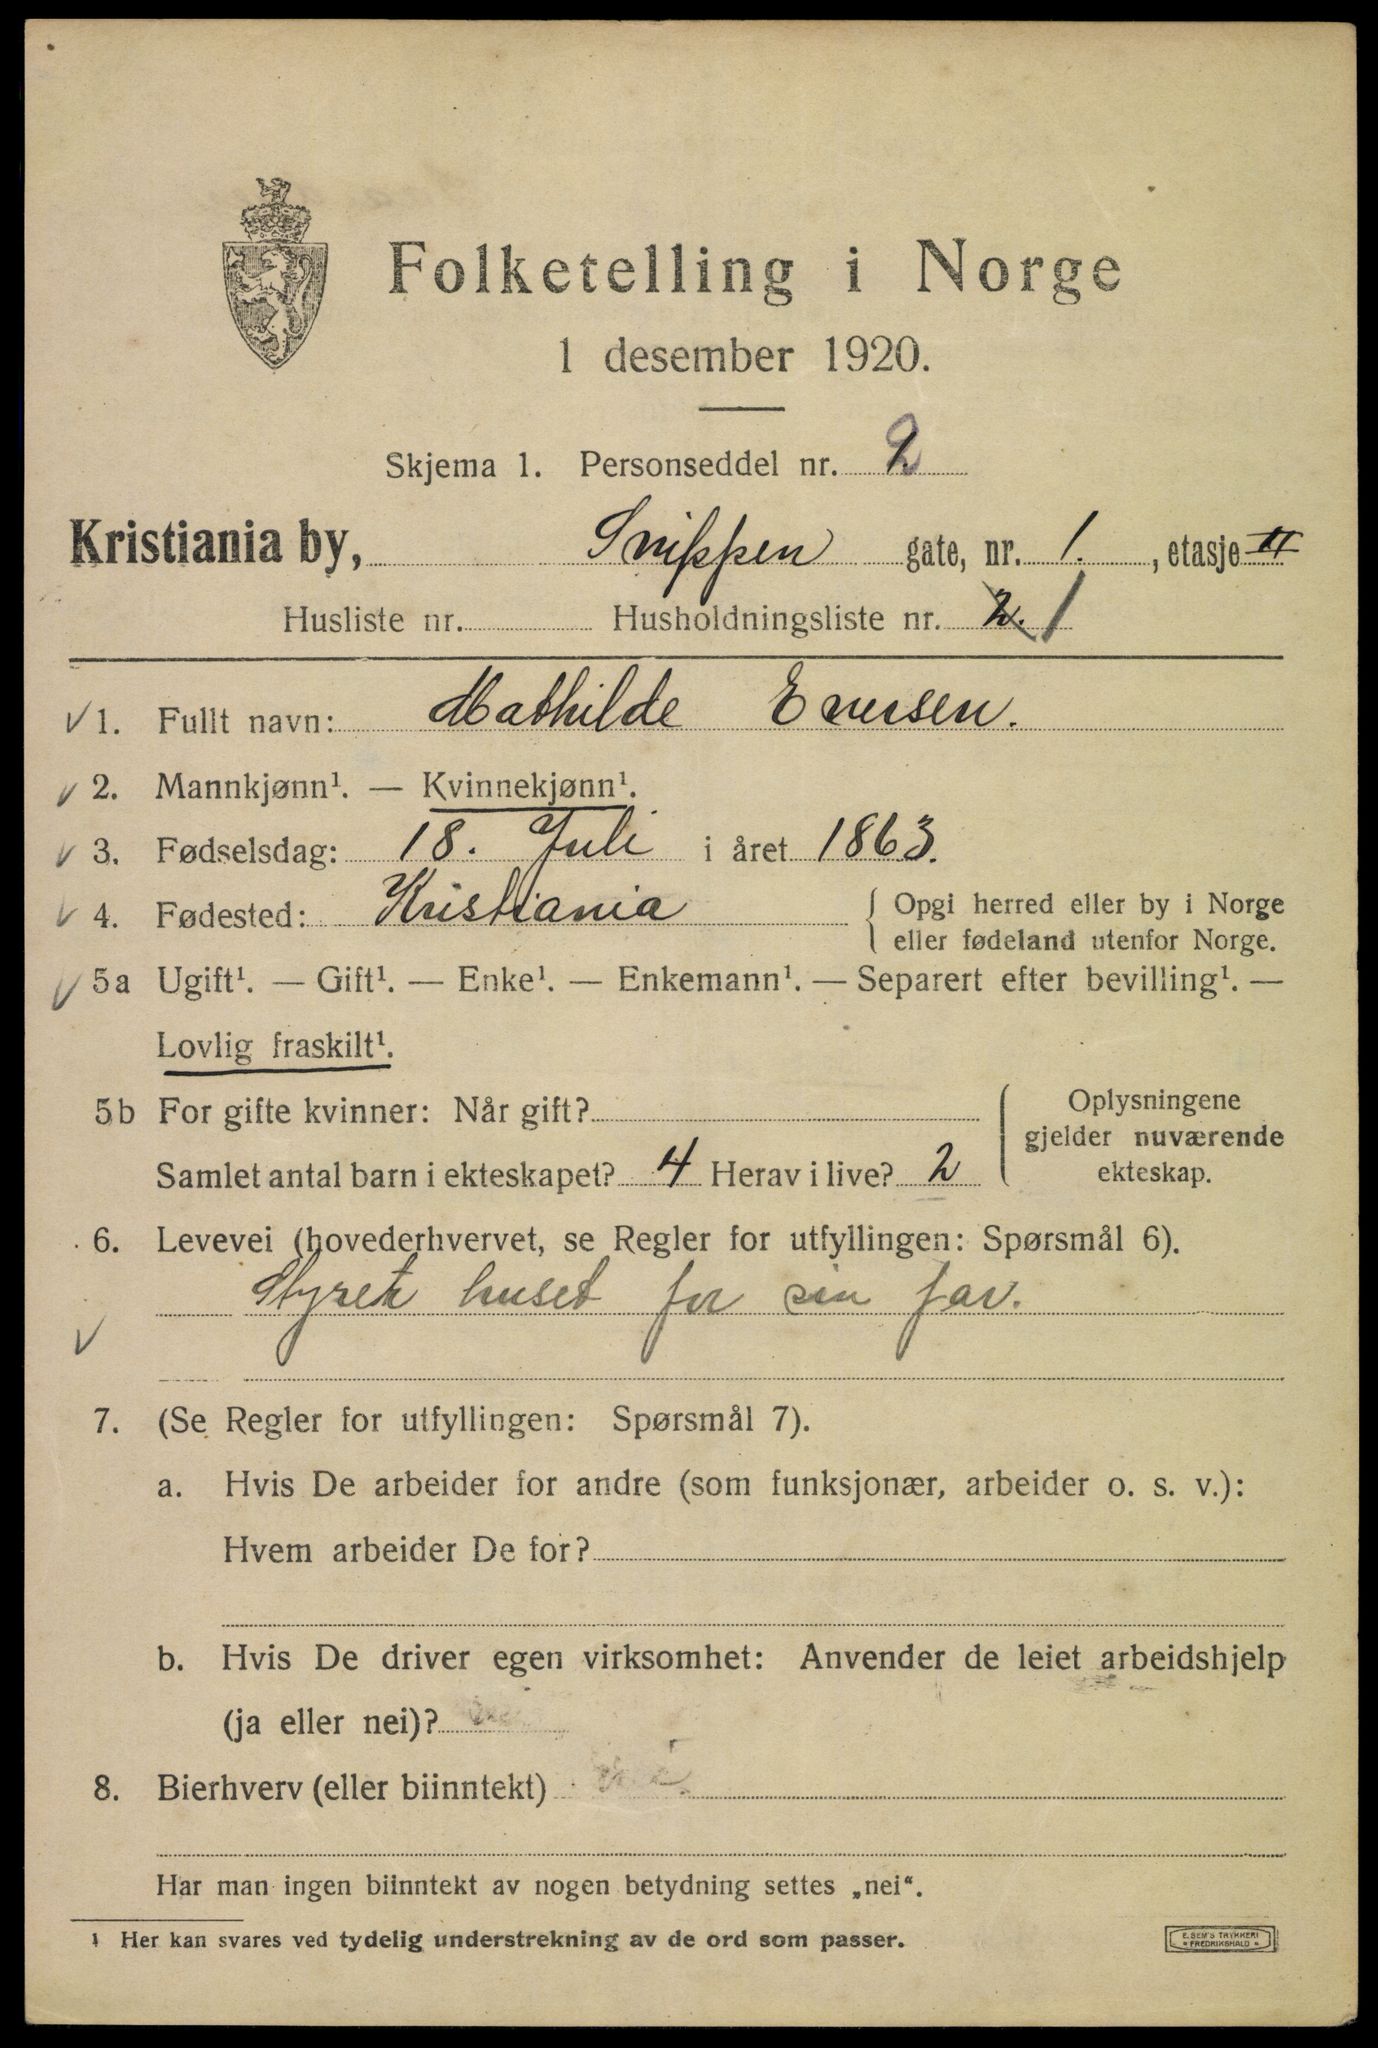 Folketelling i Norge
1 desember 1920.
Skjema 1. Personseddel nr. 2
Kristiania by, Snippen gate, nr. 1. , etasje II
Husliste nr. Husholdningsliste nr. 2. 1
✓ 1. Fullt navn: Mathilde Eversen.
✓ 2. Mannkjønn¹. — Kvinnekjønn¹.
✓ 3. Fødselsdag: 18. Juli i året 1863.
✓ 4. Fødested: Kristiania { Opgi herred eller by i Norge
eller fødeland utenfor Norge.
✓ 5a Ugift¹. — Gift¹. — Enke¹. — Enkemann¹. — Separert efter bevilling¹. —
Lovlig fraskilt¹.
5b For gifte kvinner: Når gift?
Samlet antal barn i ekteskapet? 4 Herav i live? 2
Oplysningene
gjelder nuværende
ekteskap.
6. Levevei (hovederhvervet, se Regler for utfyllingen: Spørsmål 6).
Styrer huset for sin far.
✓
7. (Se Regler for utfyllingen: Spørsmål 7).
a. Hvis De arbeider for andre (som funksjonær, arbeider o. s. v.):
Hvem arbeider De for?
b. Hvis De driver egen virksomhet: Anvender de leiet arbeidshjelp
(ja eller nei)?
8. Bierhverv (eller biinntekt)
Har man ingen biinntekt av nogen betydning settes „nei“.
¹ Her kan svares ved tydelig understrekning av de ord som passer.
E. SEM'S TRYKKERI
FREDRIKSHALD